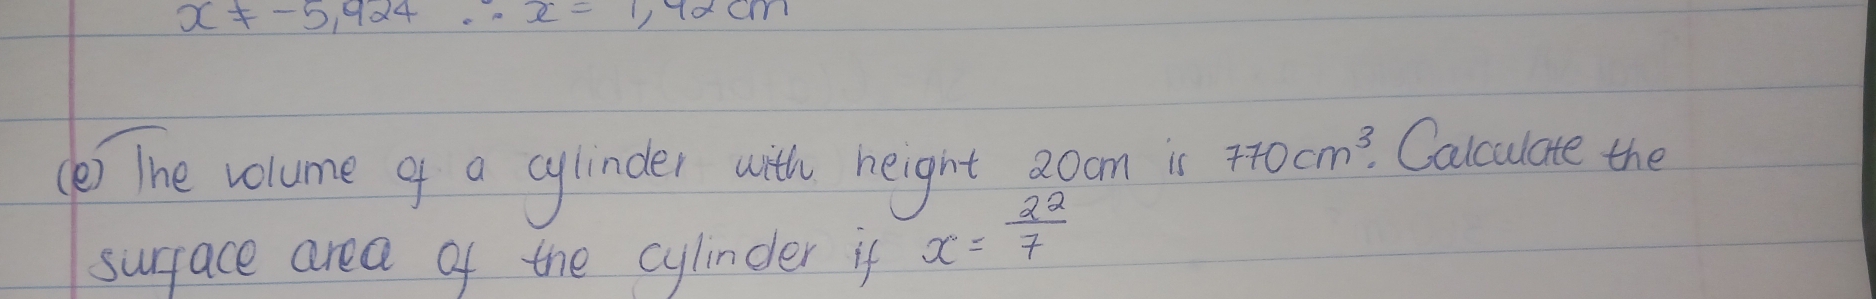 x ≠ -5,924 ∴ x = 1,42cm
(e) The volume of a cylinder with height 20cm is 770cm³. Calculate the
surface area of the cylinder if x = 22/7